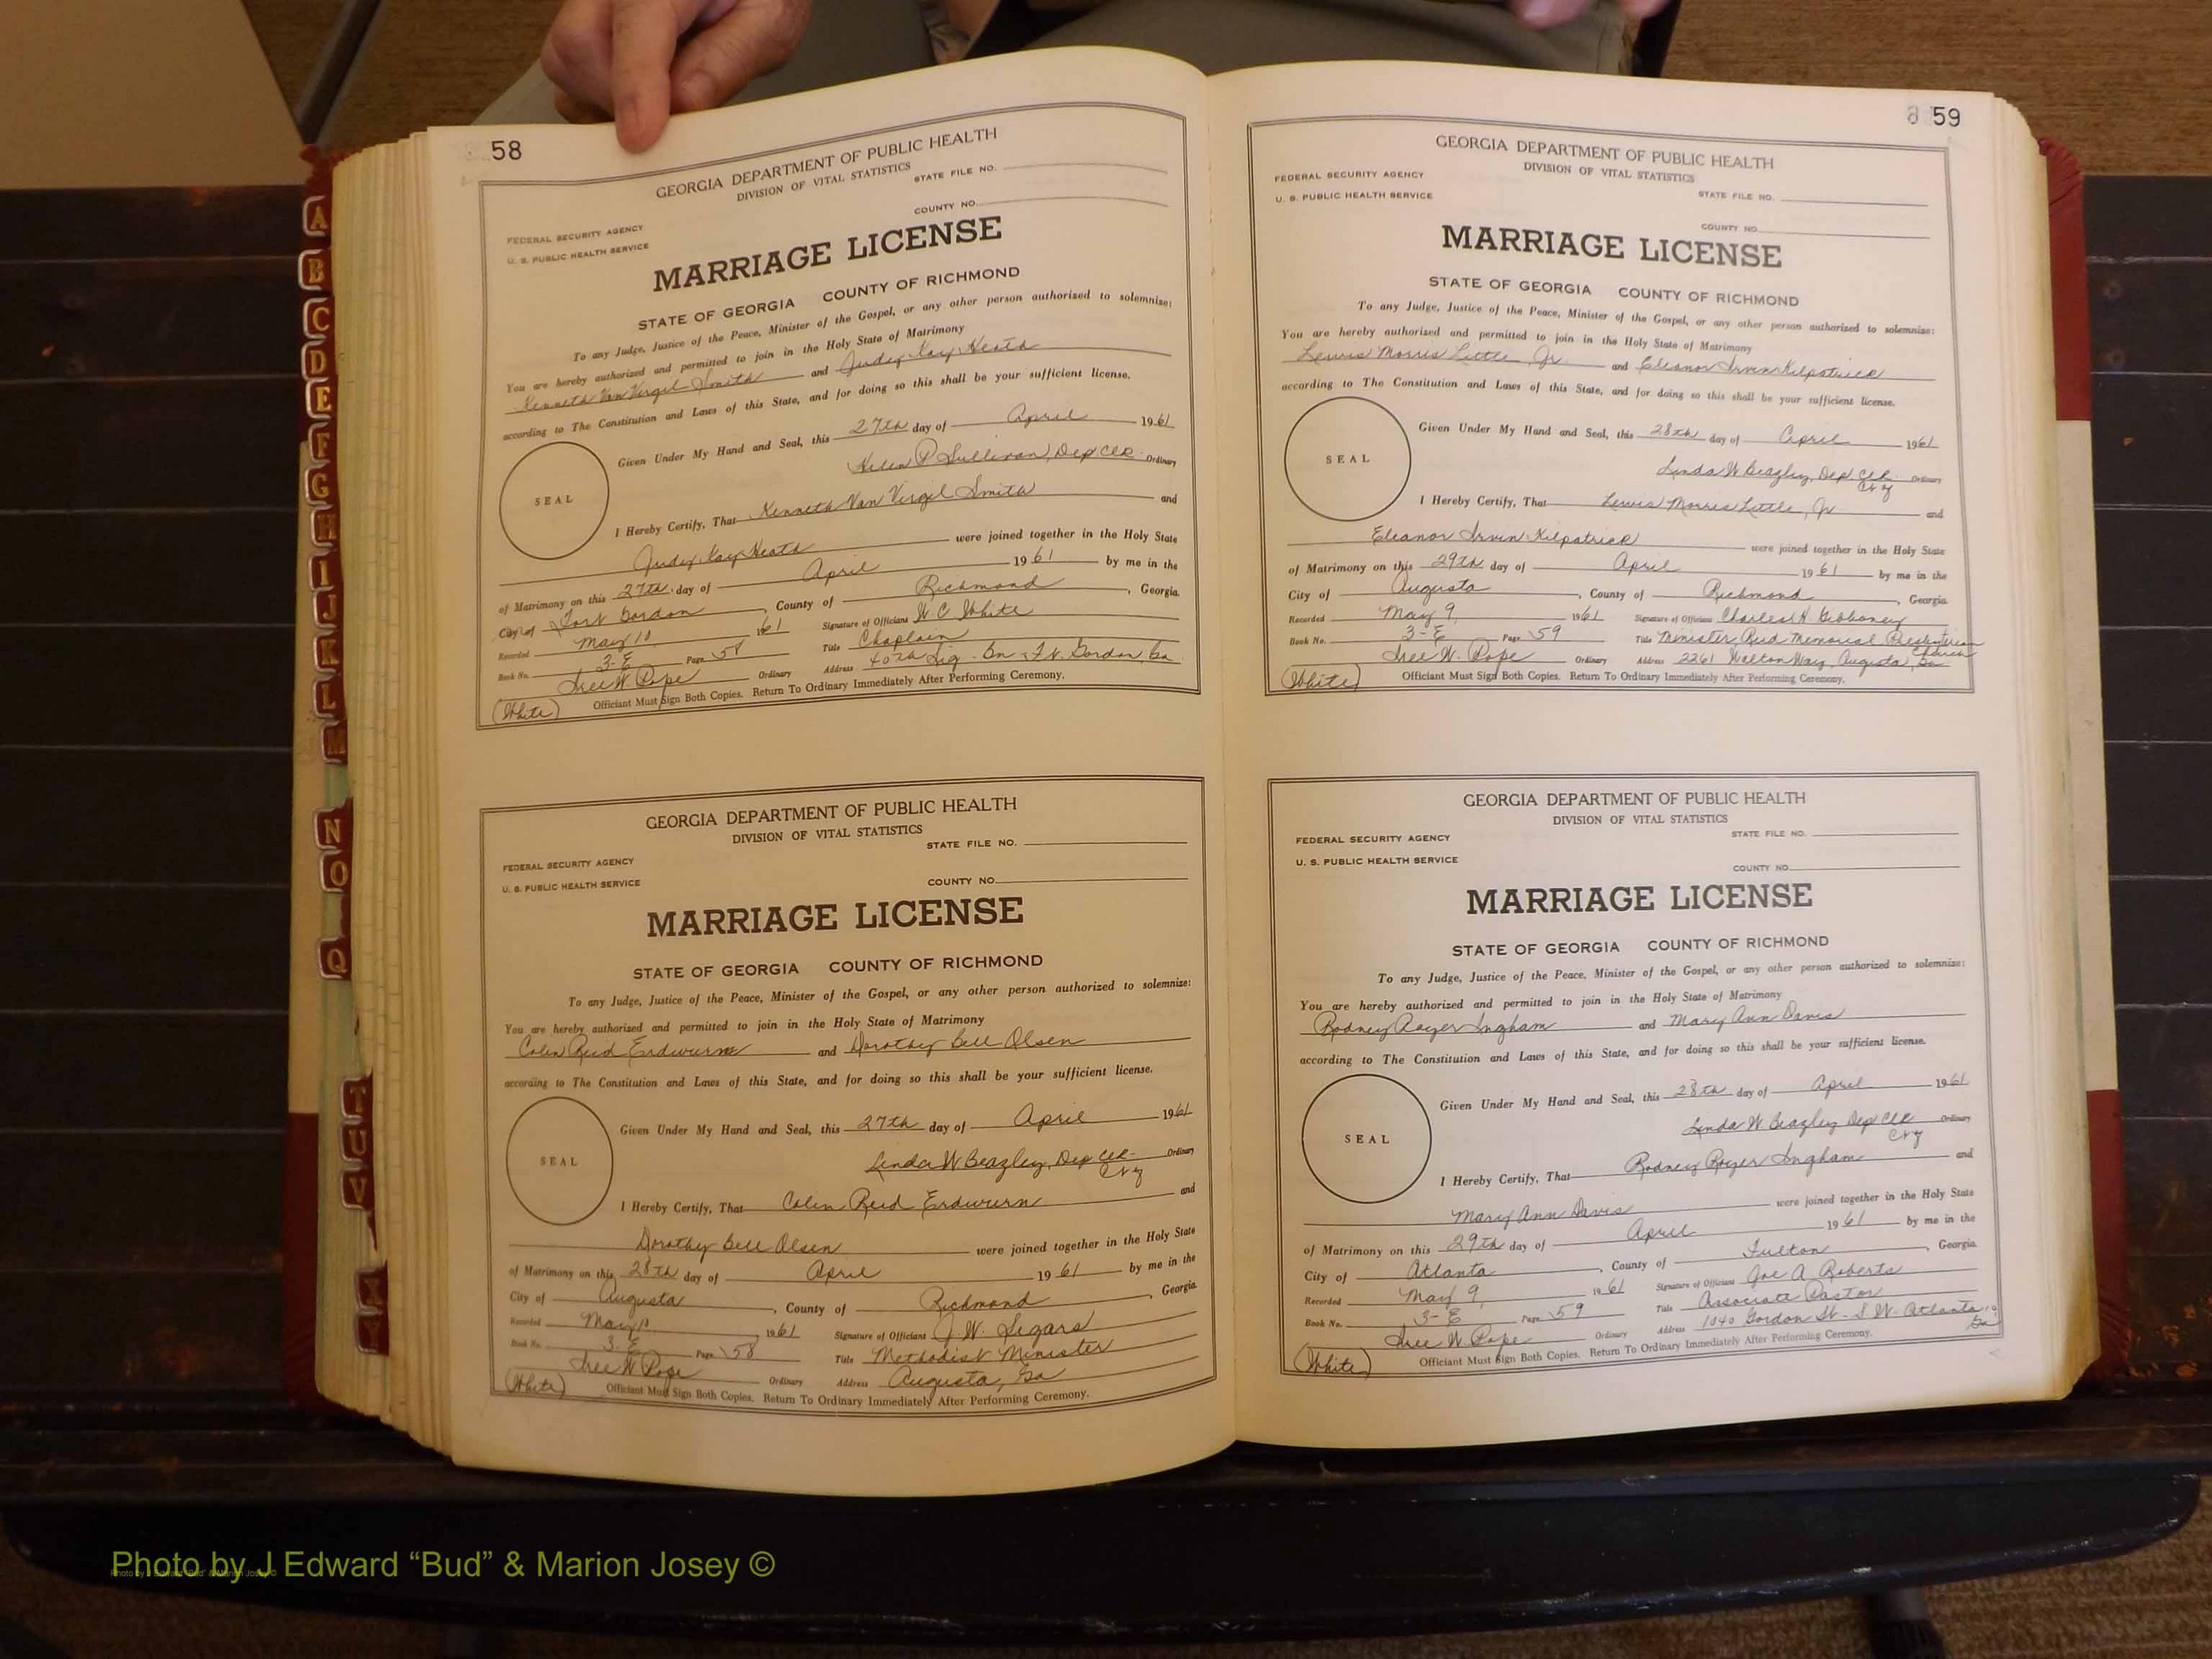 58
GEORGIA DEPARTMENT OF PUBLIC HEALTH
DIVISION OF VITAL STATISTICS
STATE FILE NO.
COUNTY NO.
FEDERAL SECURITY AGENCY
U. S. PUBLIC HEALTH SERVICE
MARRIAGE LICENSE
STATE OF GEORGIA COUNTY OF RICHMOND
To any Judge, Justice of the Peace, Minister of the Gospel, or any other person authorized to solemnize:
You are hereby authorized and permitted to join in the Holy State of Matrimony
Kenneth Van Virgil Smith and Judy Kay Heath
according to The Constitution and Laws of this State, and for doing so this shall be your sufficient license.
SEAL
Given Under My Hand and Seal, this 27th day of April 1961
Helen P Sullivan, Dep Clk Ordinary
I Hereby Certify, That Kenneth Van Virgil Smith and
Judy Kay Heath were joined together in the Holy State
of Matrimony on this 27th day of April 1961 by me in the
City of Fort Gordon, County of Richmond, Georgia.
Recorded May 10 1961 Signature of Officiant W. C. White
Book No. 3-E Page 58 Title Chaplain
Tree W. Pope Ordinary Address Sig. Bn - Ft. Gordon, Ga
(White) Officiant Must Sign Both Copies. Return To Ordinary Immediately After Performing Ceremony.
GEORGIA DEPARTMENT OF PUBLIC HEALTH
DIVISION OF VITAL STATISTICS
STATE FILE NO.
FEDERAL SECURITY AGENCY
U. S. PUBLIC HEALTH SERVICE
COUNTY NO.
MARRIAGE LICENSE
STATE OF GEORGIA COUNTY OF RICHMOND
To any Judge, Justice of the Peace, Minister of the Gospel, or any other person authorized to solemnize:
You are hereby authorized and permitted to join in the Holy State of Matrimony
Colin Reid Erdwurm and Dorothy Bell Olsen
according to The Constitution and Laws of this State, and for doing so this shall be your sufficient license.
SEAL
Given Under My Hand and Seal, this 27th day of April 1961
Linda W Beazley, Dep Clk Ordinary
Cty
I Hereby Certify, That Colin Reid Erdwurm and
Dorothy Bell Olsen were joined together in the Holy State
of Matrimony on this 28th day of April 1961 by me in the
City of Augusta, County of Richmond, Georgia.
Recorded May 10 1961 Signature of Officiant J. W. Segars
Book No. 3-E Page 58 Title Methodist Minister
Tree W Pope Ordinary Address Augusta, Ga
(White) Officiant Must Sign Both Copies. Return To Ordinary Immediately After Performing Ceremony.
59
GEORGIA DEPARTMENT OF PUBLIC HEALTH
DIVISION OF VITAL STATISTICS
FEDERAL SECURITY AGENCY
U. S. PUBLIC HEALTH SERVICE
STATE FILE NO.
COUNTY NO.
MARRIAGE LICENSE
STATE OF GEORGIA COUNTY OF RICHMOND
To any Judge, Justice of the Peace, Minister of the Gospel, or any other person authorized to solemnize:
You are hereby authorized and permitted to join in the Holy State of Matrimony
Lewis Morris Little, Jr. and Eleanor Irvin Kilpatrick
according to The Constitution and Laws of this State, and for doing so this shall be your sufficient license.
SEAL
Given Under My Hand and Seal, this 28th day of April 1961
Linda W Beazley, Dep. Clk Ordinary
Cty
I Hereby Certify, That Lewis Morris Little, Jr and
Eleanor Irvin Kilpatrick were joined together in the Holy State
of Matrimony on this 29th day of April 1961 by me in the
City of Augusta, County of Richmond, Georgia.
Recorded May 9, 1961 Signature of Officiant Charles H. Gibboney
Book No. 3-E Page 59 Title Minister, Reid Memorial Presbyterian Church
Tree W. Pope Ordinary Address 2261 Walton Way, Augusta, Ga
(White) Officiant Must Sign Both Copies. Return To Ordinary Immediately After Performing Ceremony.
GEORGIA DEPARTMENT OF PUBLIC HEALTH
DIVISION OF VITAL STATISTICS
FEDERAL SECURITY AGENCY
STATE FILE NO.
U. S. PUBLIC HEALTH SERVICE
COUNTY NO.
MARRIAGE LICENSE
STATE OF GEORGIA COUNTY OF RICHMOND
To any Judge, Justice of the Peace, Minister of the Gospel, or any other person authorized to solemnize:
You are hereby authorized and permitted to join in the Holy State of Matrimony
Rodney Royer Ingham and Mary Ann Davis
according to The Constitution and Laws of this State, and for doing so this shall be your sufficient license.
SEAL
Given Under My Hand and Seal, this 28th day of April 1961
Linda W Beazley Dep Clk Ordinary
Cty
I Hereby Certify, That Rodney Royer Ingham and
Mary Ann Davis were joined together in the Holy State
of Matrimony on this 29th day of April 1961 by me in the
City of Atlanta, County of Fulton, Georgia.
Recorded May 9 1961 Signature of Officiant Joe A Roberts
Book No. 3-E Page 59 Title Associate Pastor
Tree W Pope Ordinary Address 1040 Gordon St. S.W. Atlanta, Ga
(White) Officiant Must Sign Both Copies. Return To Ordinary Immediately After Performing Ceremony.
A
B
C
D
E
F
G
H
I
J
K
L
M
N
O
Q
T
U
V
Y
Photo by J Edward “Bud” & Marion Josey ©
Photo by J Edward “Bud” & Marion Josey ©